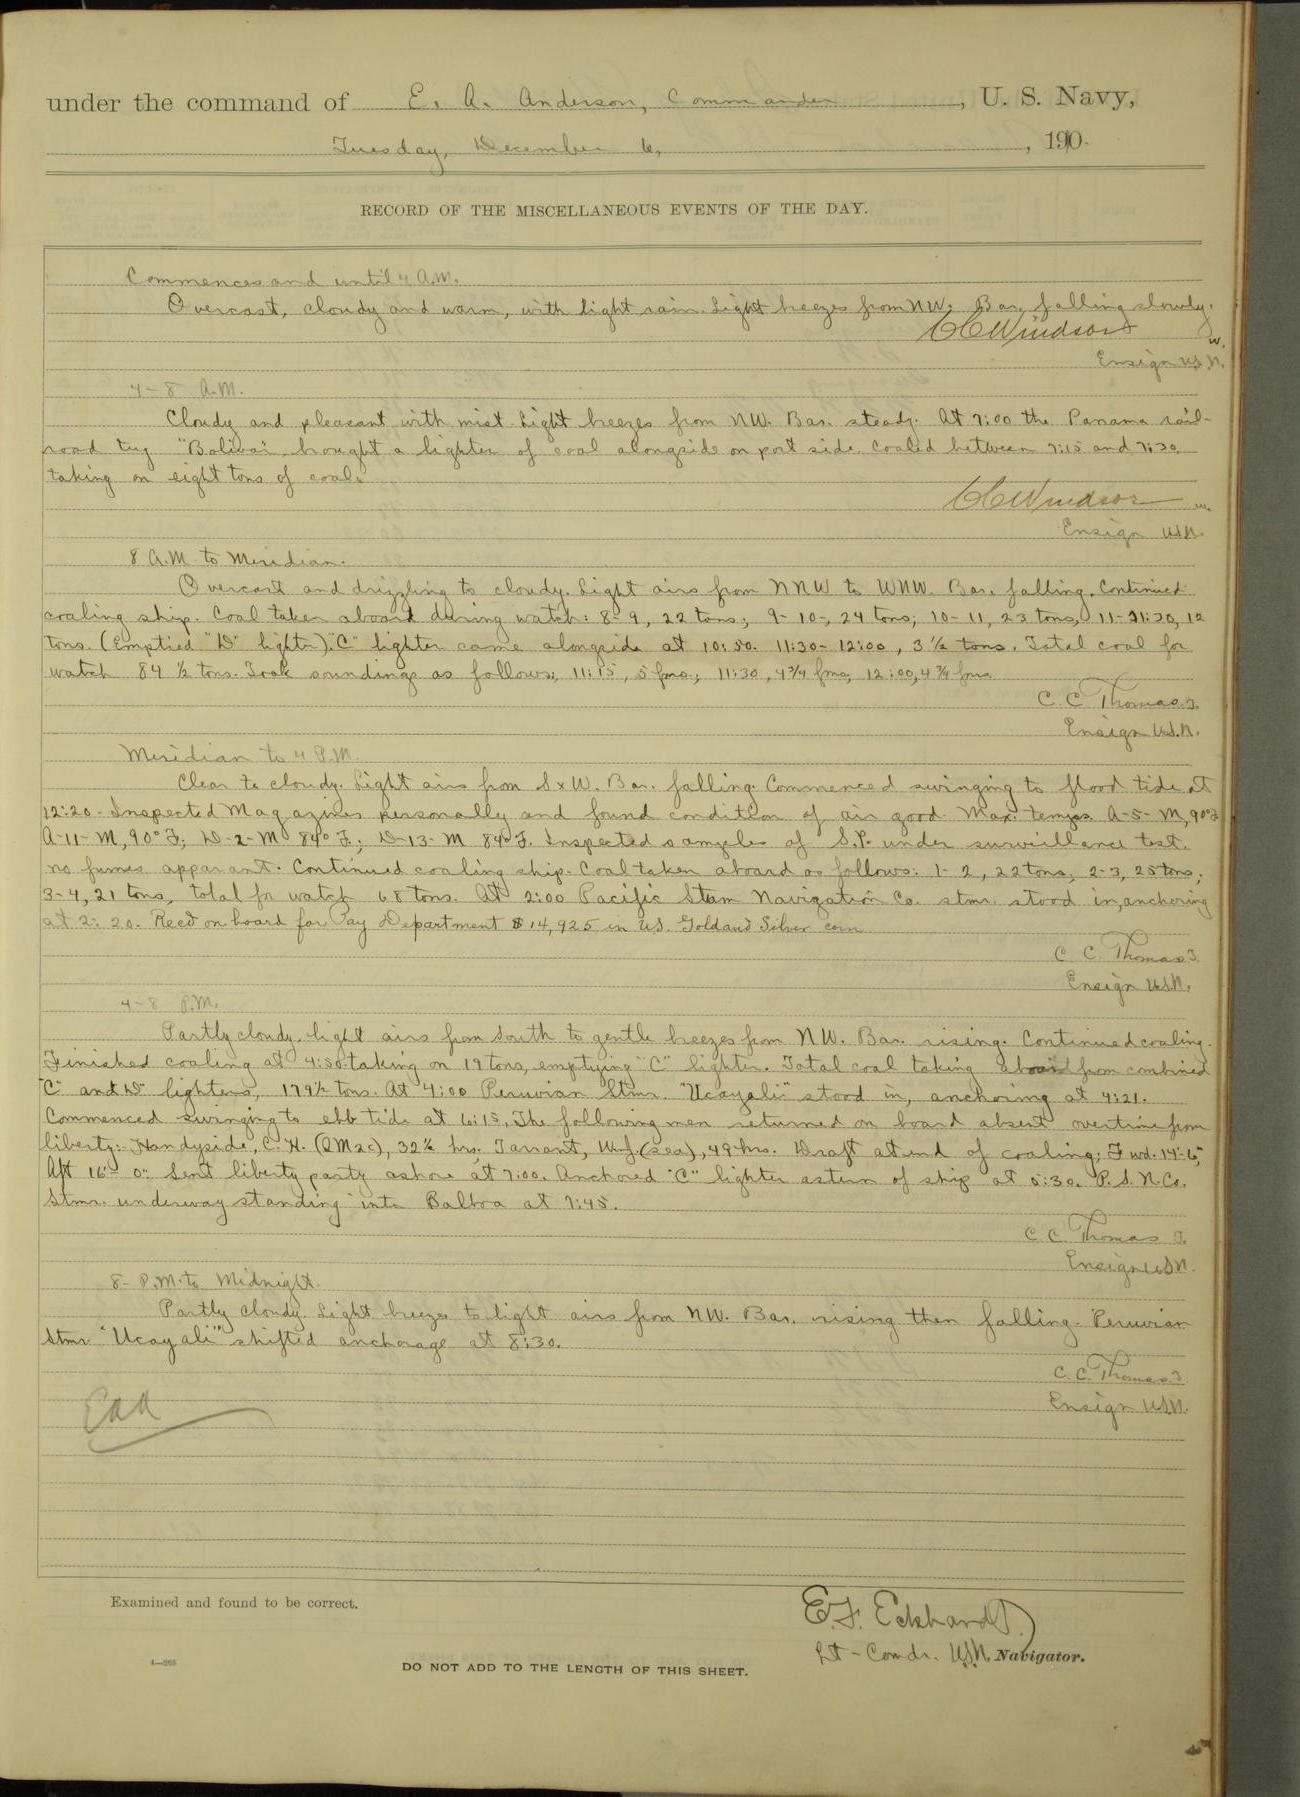 under the command of E. A. Anderson, Commander, U. S. Navy,
Tuesday, December 6, 1910.
RECORD OF THE MISCELLANEOUS EVENTS OF THE DAY.
Commences and until 4 A.M.
Overcast, cloudy and warm, with light rain. Light breezes from NW. Bar. falling slowly.
CC Windsor
w.
Ensign U.S.N.
4-8 A.M.
Cloudy and pleasant with mist. Light breezes from NW. Bar. steady. At 7:00 the Panama rail-
road tug "Bolivar" brought a lighter of coal alongside on port side. Coaled between 7:15 and 7:30,
taking on eight tons of coal.
CC Windsor w.
Ensign U.S.N.
8 A.M. to Meridian.
Overcast and drizzling to cloudy. Light airs from NNW to WNW. Bar. falling. Continued
coaling ship. Coal taken aboard during watch: 8-9, 22 tons; 9-10, 24 tons; 10-11, 23 tons; 11-11:30, 12
tons. (Emptied "D" lighter). "C" lighter came alongside at 10:50. 11:30-12:00, 3 1/2 tons. Total coal for
watch 84 1/2 tons. Took soundings as follows; 11:15, 5 fms.; 11:30, 4 3/4 fms; 12:00, 4 3/4 fms.
C. C. Thomas J.
Ensign U.S.N.
Meridian to 4 P.M.
Clear to cloudy. Light airs from SxW. Bar. falling. Commenced swinging to flood tide at
12:20. Inspected Magazines personally and found condition of air good. Max. temps. A-5-M, 90°F
A-11-M, 90°F; D-2-M 84°F.; D-13-M 84°F. Inspected samples of S.P. under surveillance test.
no fumes apparant. Continued coaling ship. Coal taken aboard as follows: 1-2, 22 tons; 2-3, 25 tons;
3-4, 21 tons, total for watch 68 tons. At 2:00 Pacific Steam Navigation Co. stmr. stood in, anchoring
at 2:20. Rec'd on board for Pay Department $14,925 in U.S. Gold and Silver coin
C. C. Thomas J.
Ensign U.S.N.
4-8 P.M.
Partly cloudy. light airs from South to gentle breezes from NW. Bar. rising. Continued coaling.
Finished coaling at 4:50 taking on 19 tons, emptying "C" lighter. Total coal taking aboard from combined
"C" and "D" lighters, 179 1/2 tons. At 4:00 Peruvian Stmr. "Ucayali" stood in, anchoring at 4:21.
Commenced swinging to ebb tide at 6:15. The following men returned on board absent overtime from
liberty: Handyside, C. H. (QM2c), 32 1/2 hrs. Tarrant, W.J. (sea), 49 hrs. Draft at end of coaling: Fwd. 14'-6",
Aft 16'-0". Sent liberty party ashore at 7:00. Anchored "C" lighter astern of ship at 5:30. P. S. N. Co.
Stmr. underway standing into Balboa at 7:45.
C. C. Thomas J.
Ensign U.S.N.
8- P.M. to Midnight.
Partly cloudy. Light breeze to light airs from NW. Bar. rising then falling. Peruvian
Stmr. "Ucayali" shifted anchorage at 8:30.
C. C. Thomas J.
Ensign U.S.N.
EAA
Examined and found to be correct.
E. F. Eckhardt
Lt-Comdr. U.S.N. Navigator.
4—265
DO NOT ADD TO THE LENGTH OF THIS SHEET.